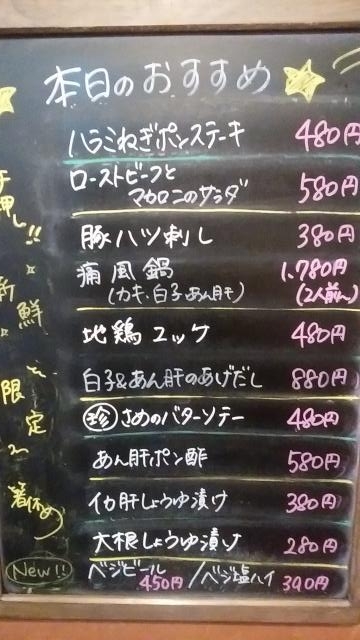 本日のおすすめ
ハラミねぎポンステーキ 480円
ローストビーフと
マカロニのサラダ 580円
豚ハツ刺し 380円
痛風鍋 1,780円
(カキ、白子、あん肝) (2人前〜)
地鶏ユッケ 480円
白子&あん肝のあげだし 880円
珍 さめのバターソテー 480円
あん肝ポン酢 580円
イカ肝しょうゆ漬け 380円
大根しょうゆ漬け 280円
ベジビール 450円 / ベジ塩ハイ 390円
押し!!
新鮮
限定
箸休め
New!!